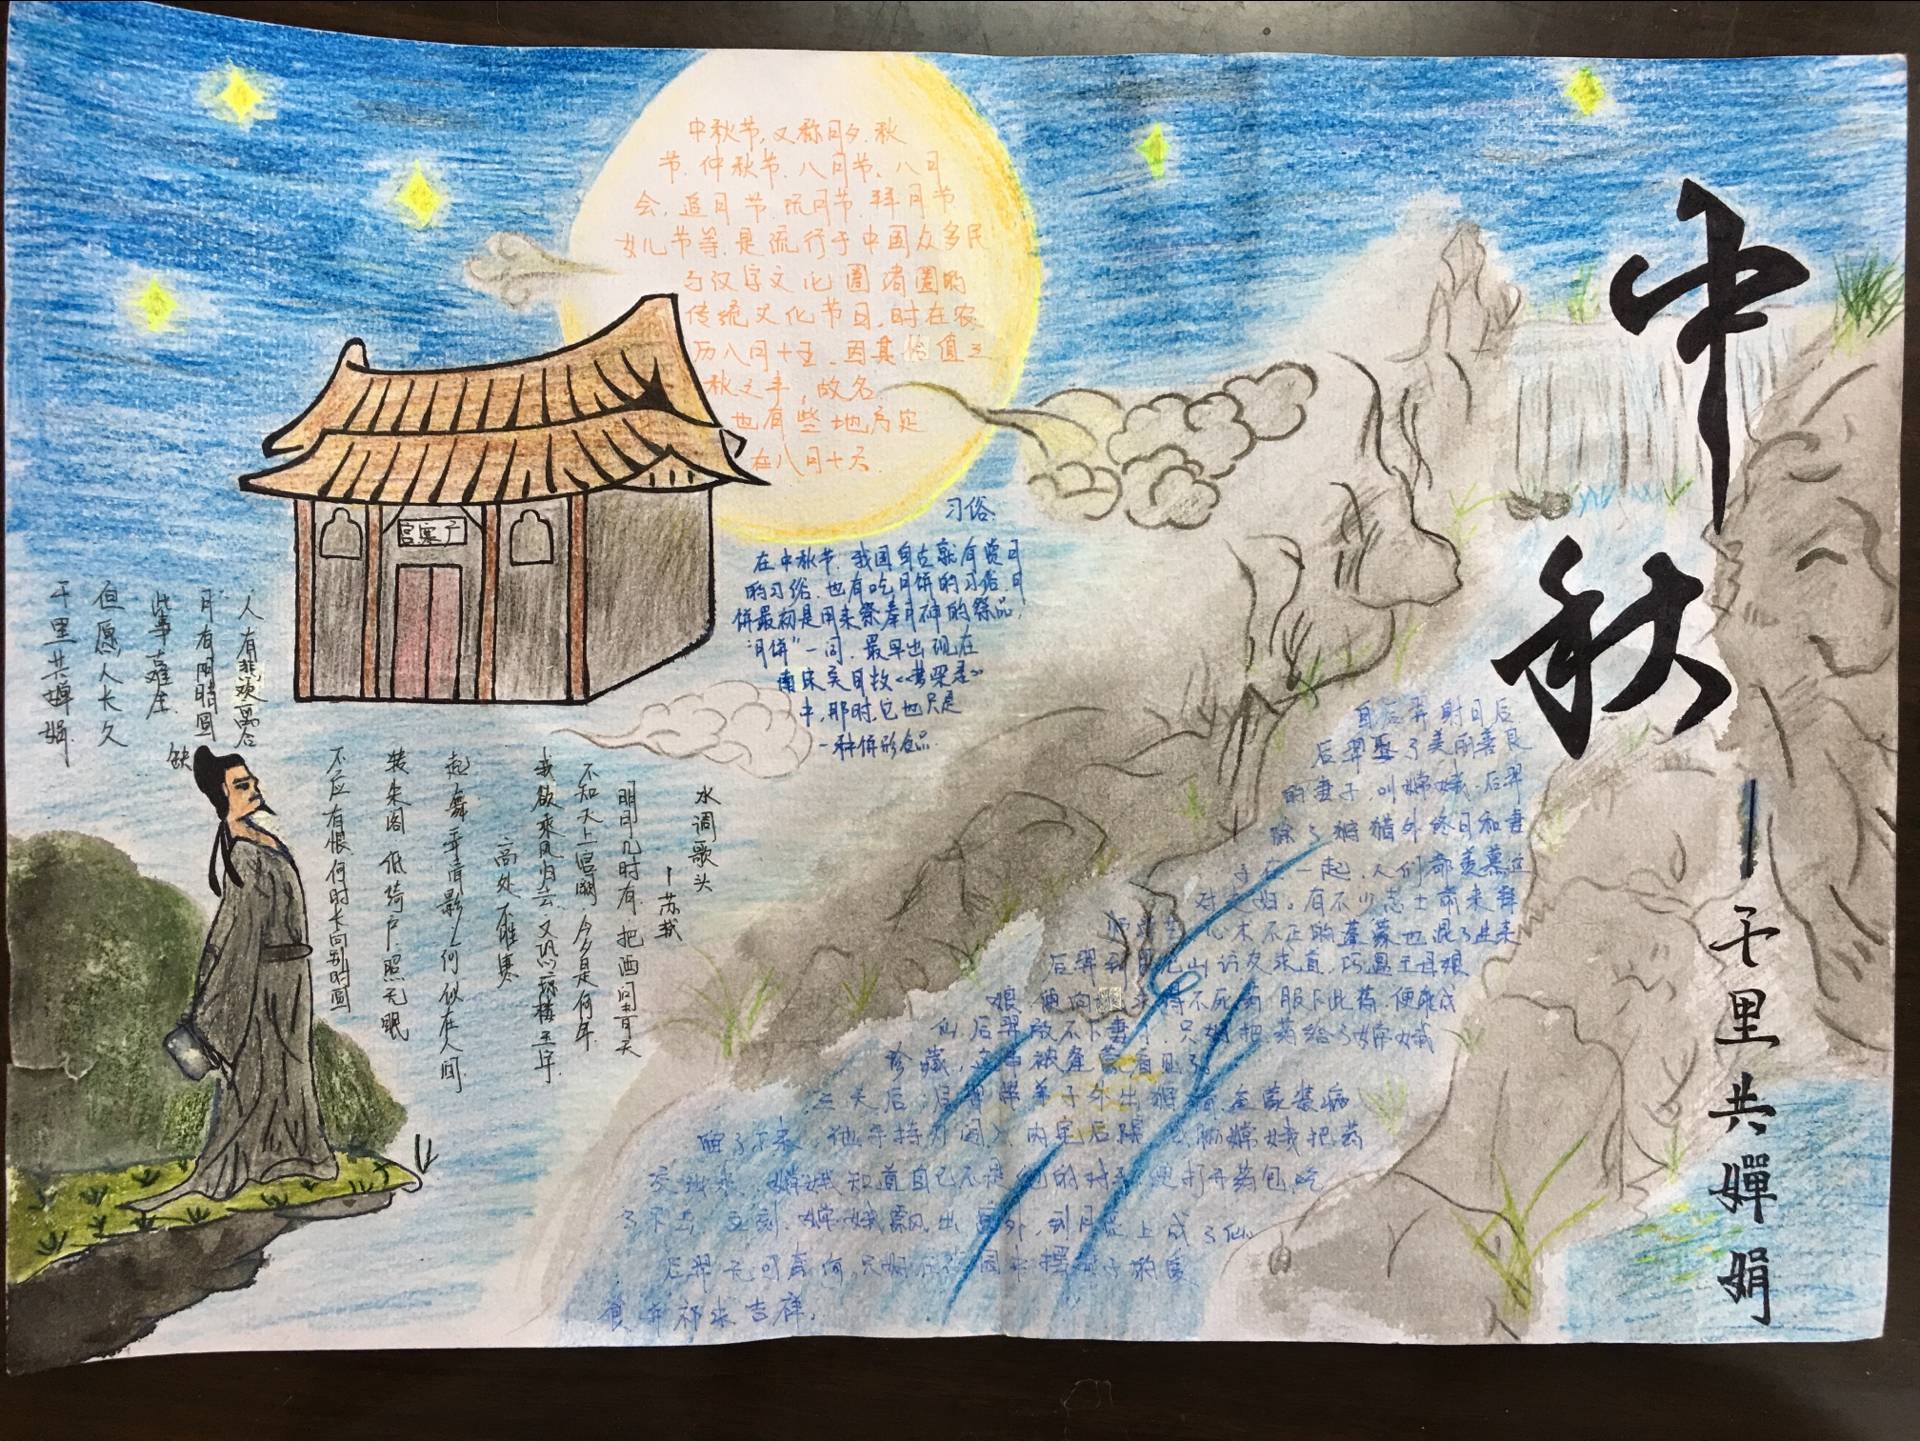 中秋
千里共婵娟
中秋节,又称月夕.秋
节.仲秋节.八月节、八月
会,追月节.玩月节.拜月节
女儿节等.是流行于中国众多民
与汉字文化圈诸国的
传统文化节日,时在农
历八月十五.因其恰值三
秋之半,故名.
也有些地方定
在八月十六.
宫寒广
习俗:
在中秋节.我国自古就有赏月
的习俗.也有吃月饼的习俗.月
饼最初是用来祭奉月神的祭品,
"月饼"一词.最早出现在
南宋吴自牧《梦梁录》
中,那时,它也只是
一种饼形食品.
水调歌头
—苏轼
明月几时有 把酒问青天
不知天上宫阙.今夕是何年.
我欲乘风归去.又恐琼楼玉宇.
高处不胜寒
起舞弄清影,何似在人间
转朱阁 低绮户.照无眠
不应有恨.何时长向别时圆
人有悲欢离合
月有阴晴圆缺
此事难全.
但愿人长久
千里共婵娟.
后羿射日后
后羿娶了美丽善良
的妻子,叫嫦娥.后羿
除了狩猎外终日和妻
子在一起,人们都羡慕这
对夫妇。有不少志士前来拜
心术不正的蓬蒙也混了进来
后羿到 山访友求道.巧遇王母娘
娘 便向 求得不死药 服下此药.便能成
仙.后羿放不下妻子.只好把药给了嫦娥
珍藏, 被蓬蒙看见了。
三天后,后羿带弟子外出狩猎 蓬蒙装病
他手持刀闯入内宅后院 嫦娥把药
交出来.嫦娥知道自己不是他的对手 便打开药包,吃
了下去.立刻.嫦娥飘出窗外,到月 上成了仙
后羿无可奈何,只好
食 祈求吉祥.